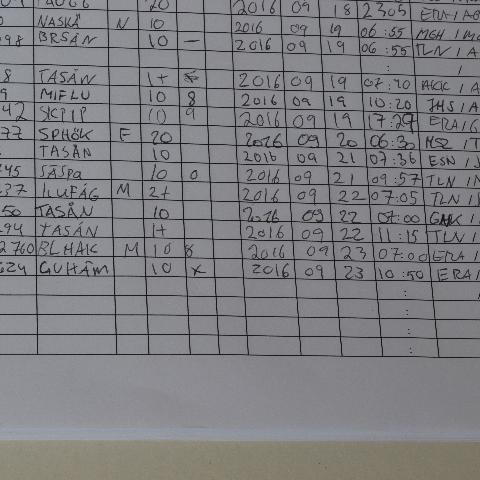 20 2016 09 18 23:05
NASKÅ N 10 2016 09 19 06:55 MGH
98 BRSÅN 10 — 2016 09 19 06:55 TLN / A
: /
8 TASÅN 1+ 2016 09 19 07:40 / A
9 MIFLU 10 8 2016 09 19 10:20 JHS / A
42 SKPIP 10 9 2016 09 19 17:27 ERA / G
77 SPHÖK F 20 2016 09 20 06:30 / T
TASÅN 10 2016 09 21 07:36 ESN /
45 SÄSPA 10 0 2016 09 21 09:57 TLN / N
37 ILUFÅG M 2+ 2016 09 22 07:05 TLN / S
50 TASÅN 10 2016 09 22 07:00 / A
94 TASÅN 1+ 2016 09 22 11:15 TLN /
2760 BLHAK M 10 8 2016 09 23 07:00 ERA /
624 GUHÄM 10 x 2016 09 23 10:50 ERA
:
:
:
: